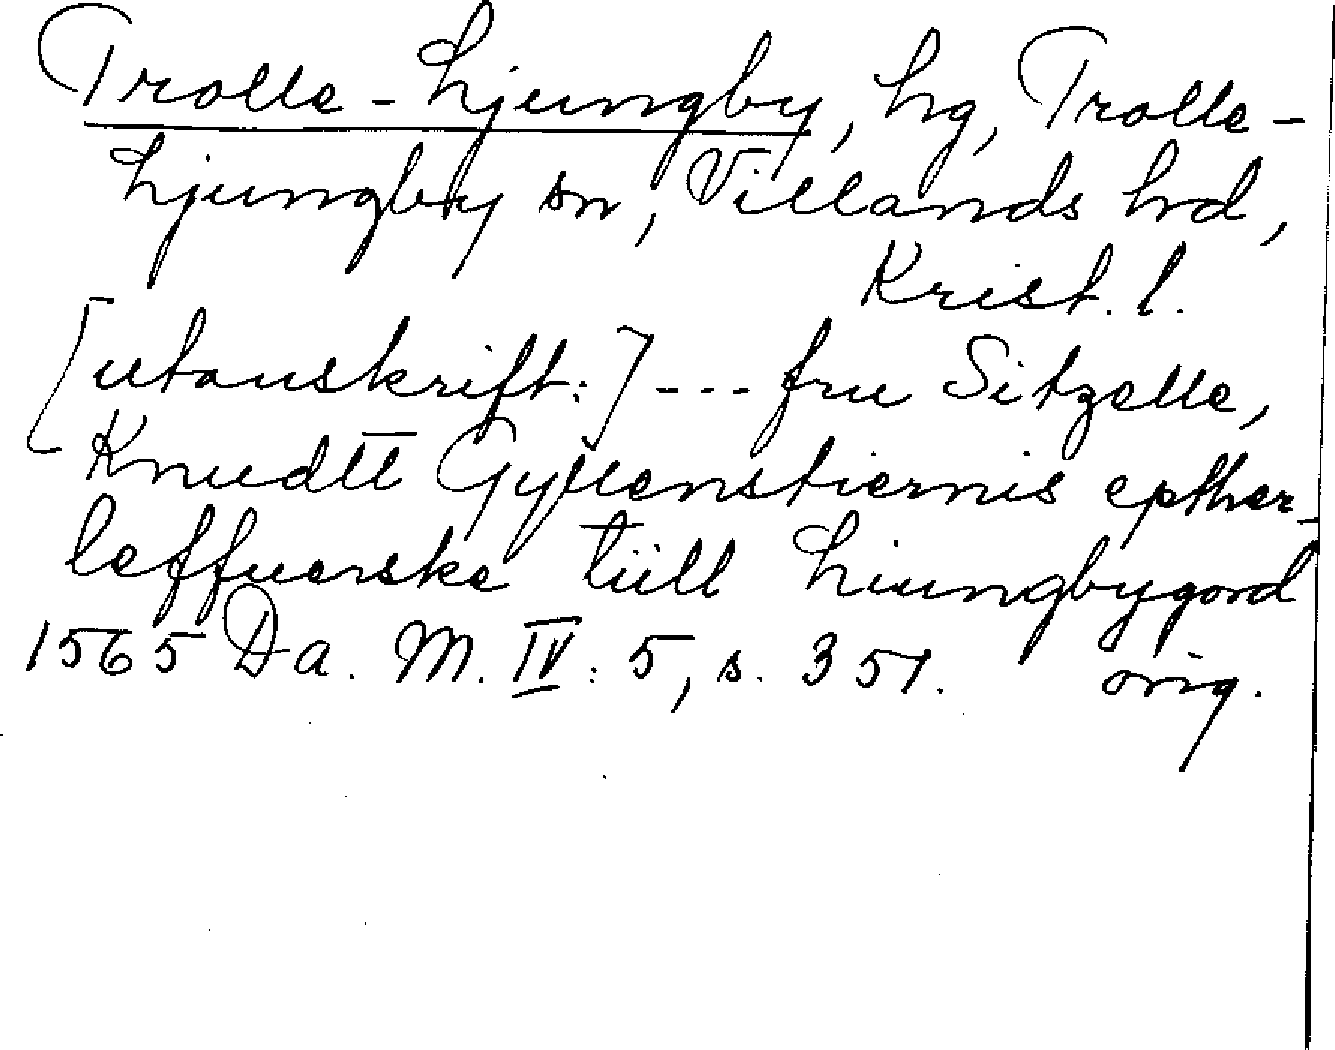 Trolle-Ljungby, hg, Trolle-
Ljungby sn, Villands hd,
Krist. l.
[utanskrift:] --- frue Sitzelle,
Knudtt Gyllenstiernis epther-
leffuerske tiill Liungbygord
1565 Da. M. IV: 5, s. 351. orig.